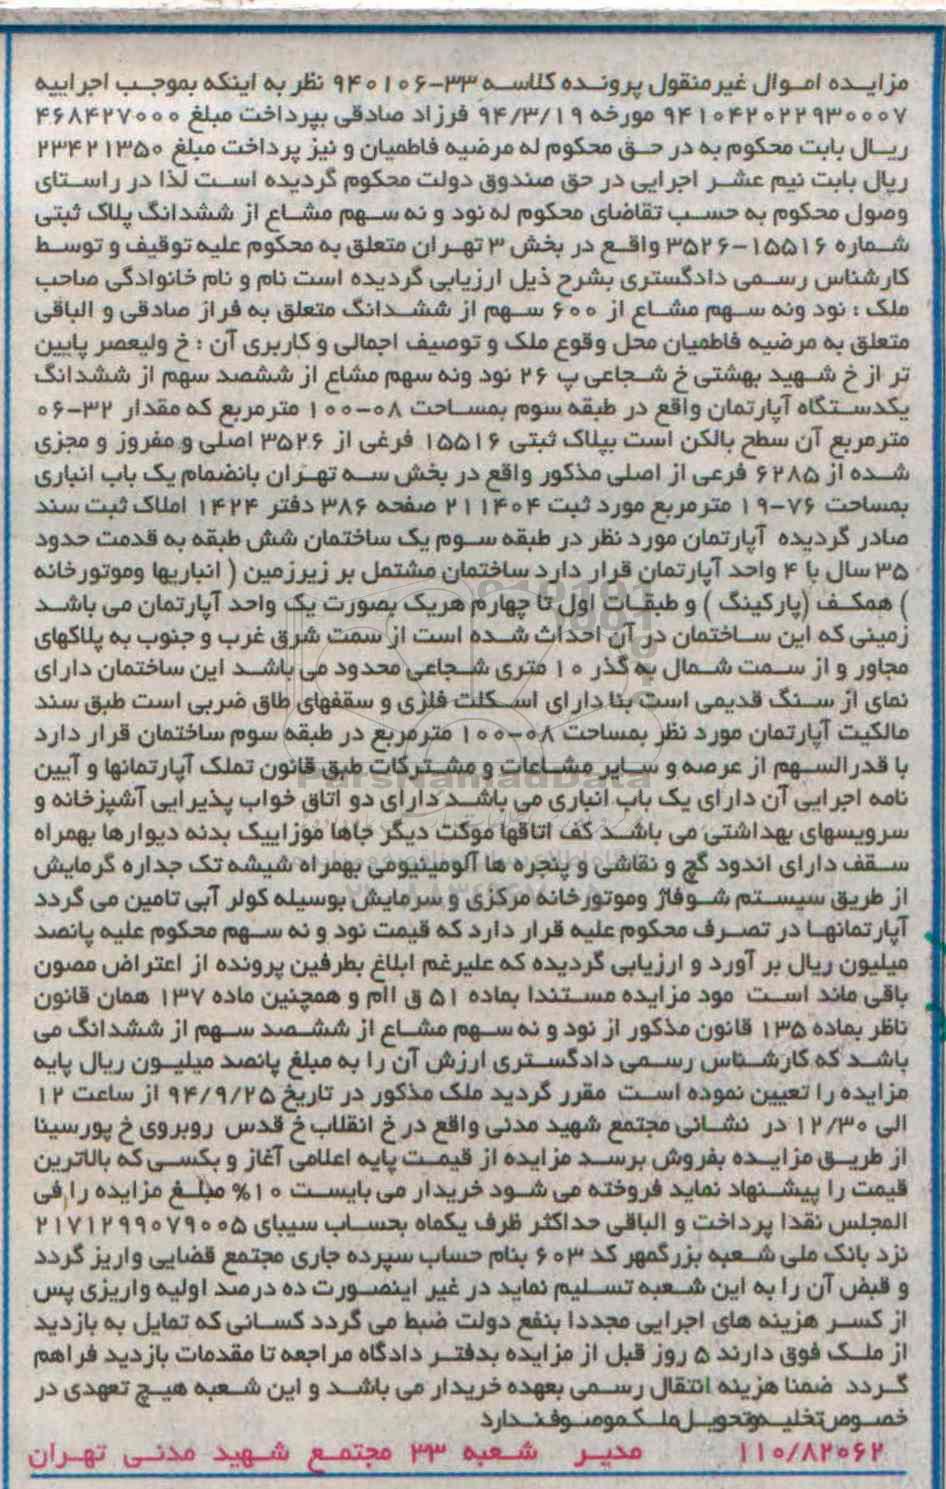 مزایده اموال غیر منقول پرونده کلاسه ۳۳-۹۴۰۱۰۶ نظر به اینکه بموجب اجراییه
۹۴۱۰۴۲۰۲۲۹۳۰۰۰۷ مورخه ۹۴/۳/۱۹ فرزاد صادقی بپرداخت مبلغ ۴۶۸۴۲۷۰۰۰
ریال بابت محکوم به در حق محکوم له مرضیه فاطمیان و نیز پرداخت مبلغ ۲۳۴۲۱۳۵۰
ریال بابت نیم عشر اجرایی در حق صندوق دولت محکوم گردیده است لذا در راستای
وصول محکوم به حسب تقاضای محکوم له نود و نه سهم مشاع از ششدانگ پلاک ثبتی
شماره ۱۵۵۱۶-۳۵۲۶ واقع در بخش ۳ تهران متعلق به محکوم علیه توقیف و توسط
کارشناس رسمی دادگستری بشرح ذیل ارزیابی گردیده است نام و نام خانوادگی صاحب
ملک : نود ونه سهم مشاع از ۶۰۰ سهم از ششدانگ متعلق به فراز صادقی و الباقی
متعلق به مرضیه فاطمیان محل وقوع ملک و توصیف اجمالی و کاربری آن : خ ولیعصر پایین
تر از خ شهید بهشتی خ شجاعی پ ۲۶ نود ونه سهم مشاع از ششصد سهم از ششدانگ
یکدستگاه آپارتمان واقع در طبقه سوم بمساحت ۰۸-۱۰۰ مترمربع که مقدار ۳۲-۰۶
مترمربع آن سطح بالکن است بپلاک ثبتی ۱۵۵۱۶ فرغی از ۳۵۲۶ اصلی و مفروز و مجزی
شده از ۶۲۸۵ فرعی از اصلی مذکور واقع در بخش سه تهران بانضمام یک باب انباری
بمساحت ۷۶-۱۹ مترمربع مورد ثبت ۲۱۱۴۰۴ صفحه ۳۸۶ دفتر ۱۴۲۴ املاک ثبت سند
صادر گردیده آپارتمان مورد نظر در طبقه سوم یک ساختمان شش طبقه به قدمت حدود
۳۵ سال با ۴ واحد آپارتمان قرار دارد ساختمان مشتمل بر زیرزمین ( انباریها وموتورخانه
) همکف (پارکینگ ) و طبقات اول تا چهارم هریک بصورت یک واحد آپارتمان می باشد
زمینی که این ساختمان در آن احداث شده است از سمت شرق غرب و جنوب به پلاکهای
مجاور و از سمت شمال به گذر ۱۰ متری شجاعی محدود می باشد این ساختمان دارای
نمای از سنگ قدیمی است بنا دارای اسکلت فلزی و سقفهای طاق ضربی است طبق سند
مالکیت آپارتمان مورد نظر بمساحت ۰۸-۱۰۰ مترمربع در طبقه سوم ساختمان قرار دارد
با قدرالسهم از عرصه و سایر مشاعات و مشترکات طبق قانون تملک آپارتمانها و آیین
نامه اجرایی آن دارای یک باب انباری می باشد دارای دو اتاق خواب پذیرایی آشپزخانه و
سرویسهای بهداشتی می باشد کف اتاقها موکت دیگر جاها موزاییک بدنه دیوارها بهمراه
سقف دارای اندود گچ و نقاشی و پنجره ها آلومینیومی بهمراه شیشه تک جداره گرمایش
از طریق سیستم شوفاژ وموتورخانه مرکزی و سرمایش بوسیله کولر آبی تامین می گردد
آپارتمانها در تصرف محکوم علیه قرار دارد که قیمت نود و نه سهم محکوم علیه پانصد
میلیون ریال بر آورد و ارزیابی گردیده که علیرغم ابلاغ بطرفین پرونده از اعتراض مصون
باقی ماند است مود مزایده مستندا بماده ۵۱ ق اام و همچنین ماده ۱۳۷ همان قانون
ناظر بماده ۱۳۵ قانون مذکور از نود و نه سهم مشاع از ششصد سهم از ششدانگ می
باشد که کارشناس رسمی دادگستری ارزش آن را به مبلغ پانصد میلیون ریال پایه
مزایده را تعیین نموده است مقرر گردید ملک مذکور در تاریخ ۹۴/۹/۲۵ از ساعت ۱۲
الی ۱۲/۳۰ در نشانی مجتمع شهید مدنی واقع در خ انقلاب خ قدس روبروی خ پورسینا
از طریق مزایده بفروش برسد مزایده از قیمت پایه اعلامی آغاز و بکسی که بالاترین
قیمت را پیشنهاد نماید فروخته می شود خریدار می بایست ۱۰% مبلغ مزایده را فی
المجلس نقدا پرداخت و الباقی حداکثر ظرف یکماه بحساب سیبای ۲۱۷۱۲۹۹۰۷۹۰۰۵
نزد بانک ملی شعبه بزرگمهر کد ۶۰۳ بنام حساب سپرده جاری مجتمع قضایی واریز گردد
و قبض آن را به این شعبه تسلیم نماید در غیر اینصورت ده درصد اولیه واریزی پس
از کسر هزینه های اجرایی مجددا بنفع دولت ضبط می گردد کسانی که تمایل به بازدید
از ملک فوق دارند ۵ روز قبل از مزایده بدفتر دادگاه مراجعه تا مقدمات بازدید فراهم
گردد ضمنا هزینه انتقال رسمی بعهده خریدار می باشد و این شعبه هیچ تعهدی در
خصوص تخلیه و تحویل ملک موصوف ندارد
۱۱۰/۸۲۰۶۲ مدیر شعبه ۳۳ مجتمع شهید مدنی تهران
ParsNamadData